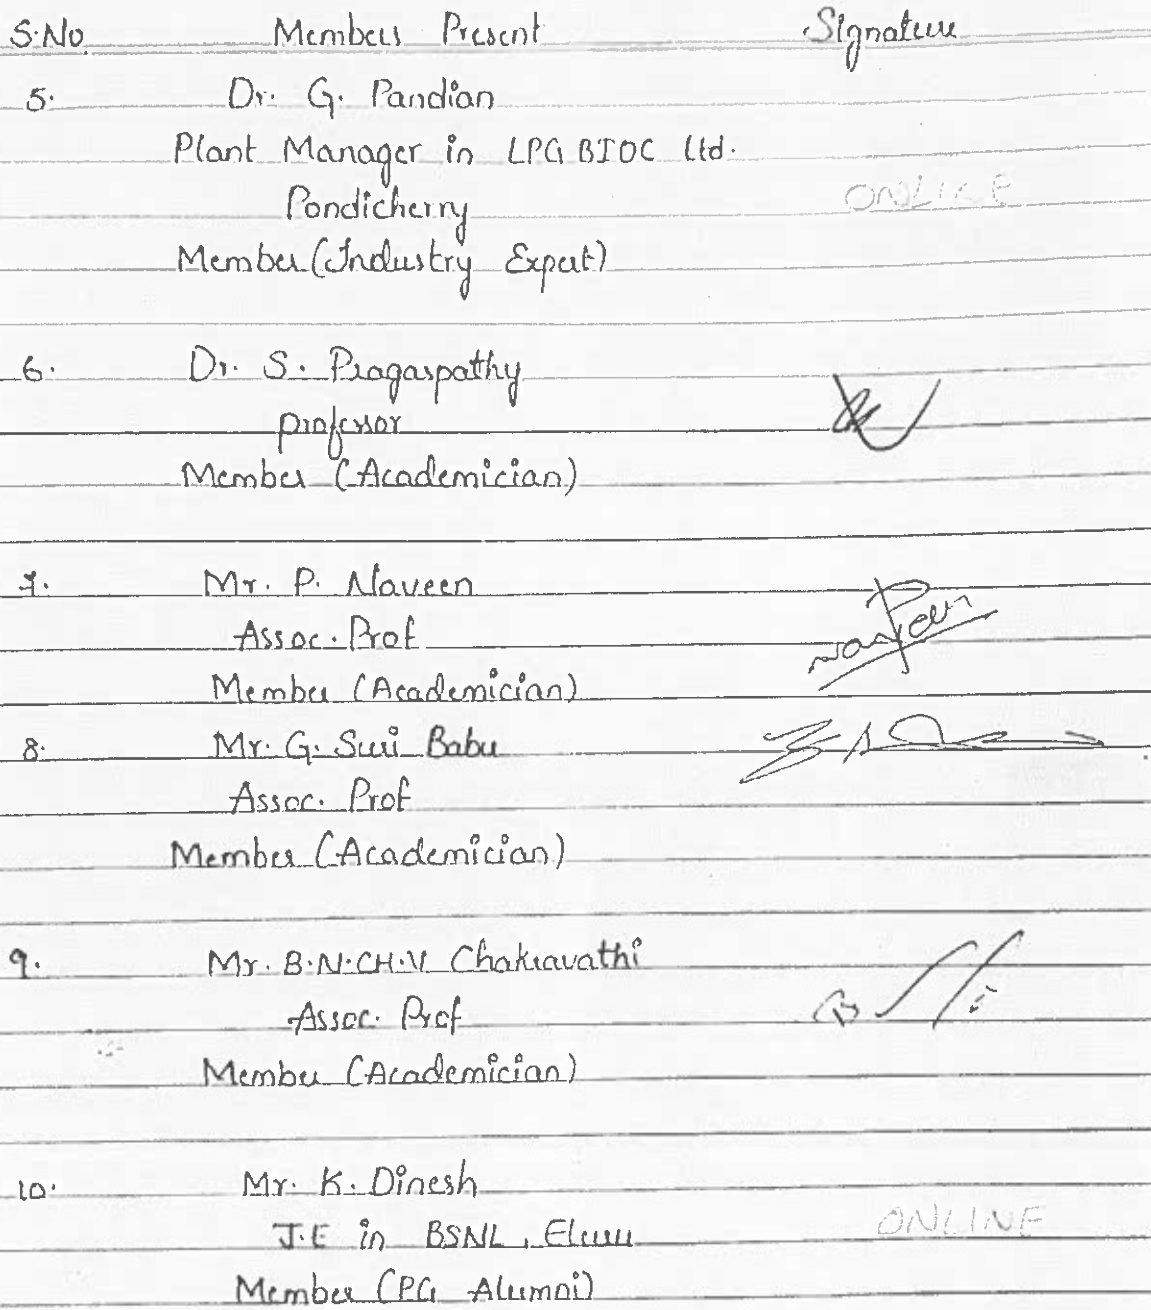 S.No. Members Present Signature
5. Dr. G. Pandian
Plant Manager in LPG BIOC Ltd.
Pondicherry ONLINE
Member (Industry Expert)
6. Dr. S. Pragaspathy
professor
Member (Academician)
7. Mr. P. Naveen
Assoc. Prof Naveen
Member (Academician)
8. Mr. G. Suri Babu
Assoc. Prof
Member (Academician)
9. Mr. B.N.CH.V Chakravathi
Assoc. Prof
Member (Academician)
10. Mr. K. Dinesh
J.E in BSNL, Eluru ONLINE
Member (PG Alumni)